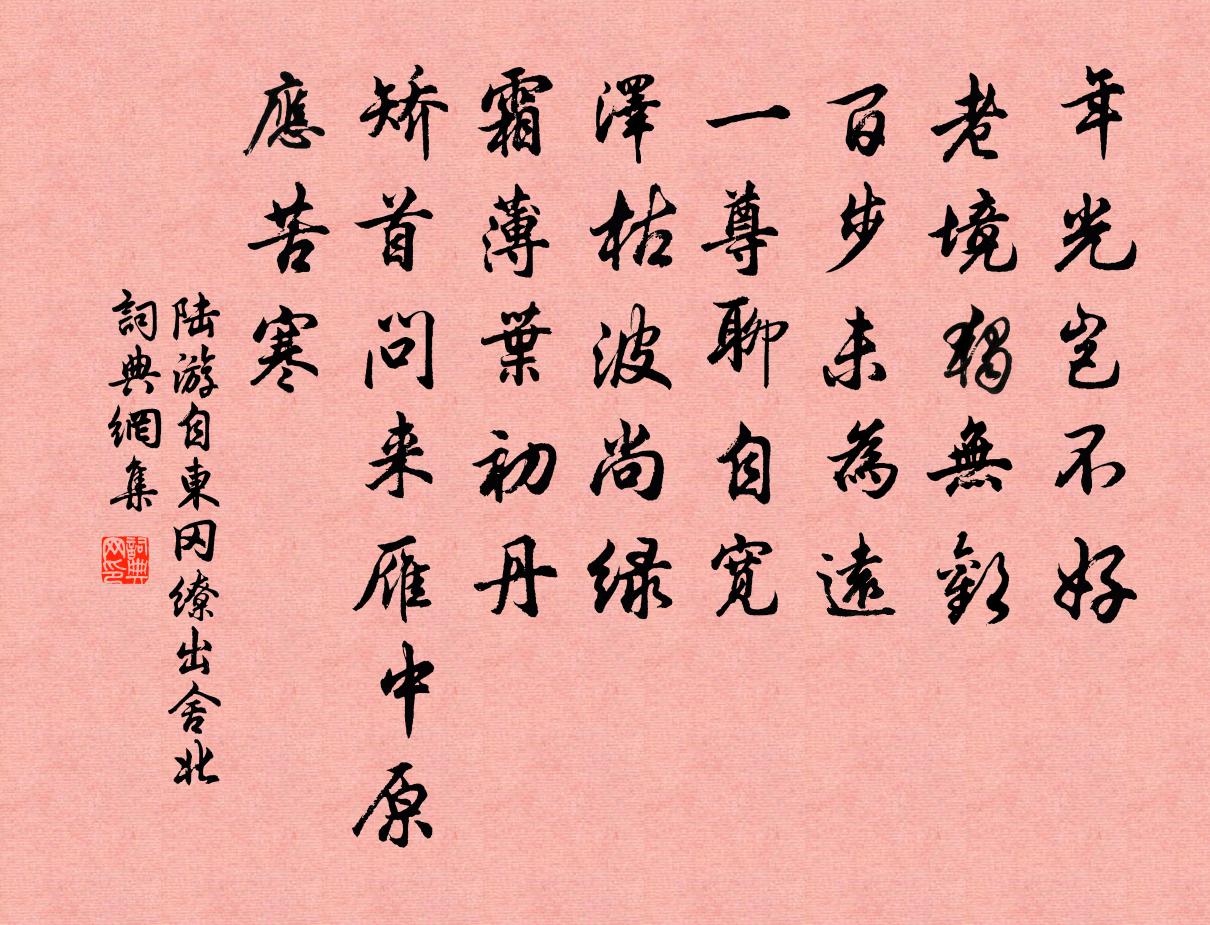 年光豈不好
老境獨無歡
百步未為遠
一尊聊自寬
澤枯波尚緑
霜薄葉初丹
矯首問来雁中原
應苦寒
陆游自東冈繚出舍北
詞典網集
詞典网印